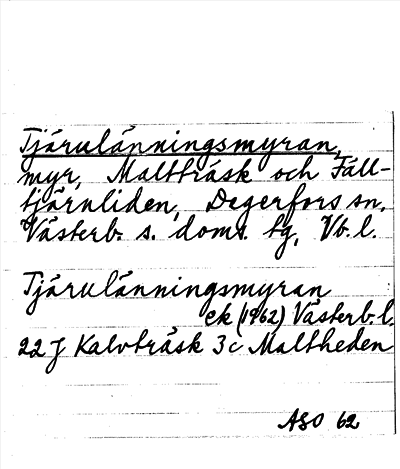 Tjärulänningsmyran,
myr, Maltträsk och Fäll-
tjärnliden, Degerfors sn.
Västerb. s. doms. tg, Vb. l.
Tjärulänningsmyran
ek (1962) Västerb. l.
22 J Kalvträsk 3 c Maltheden
ASO 62